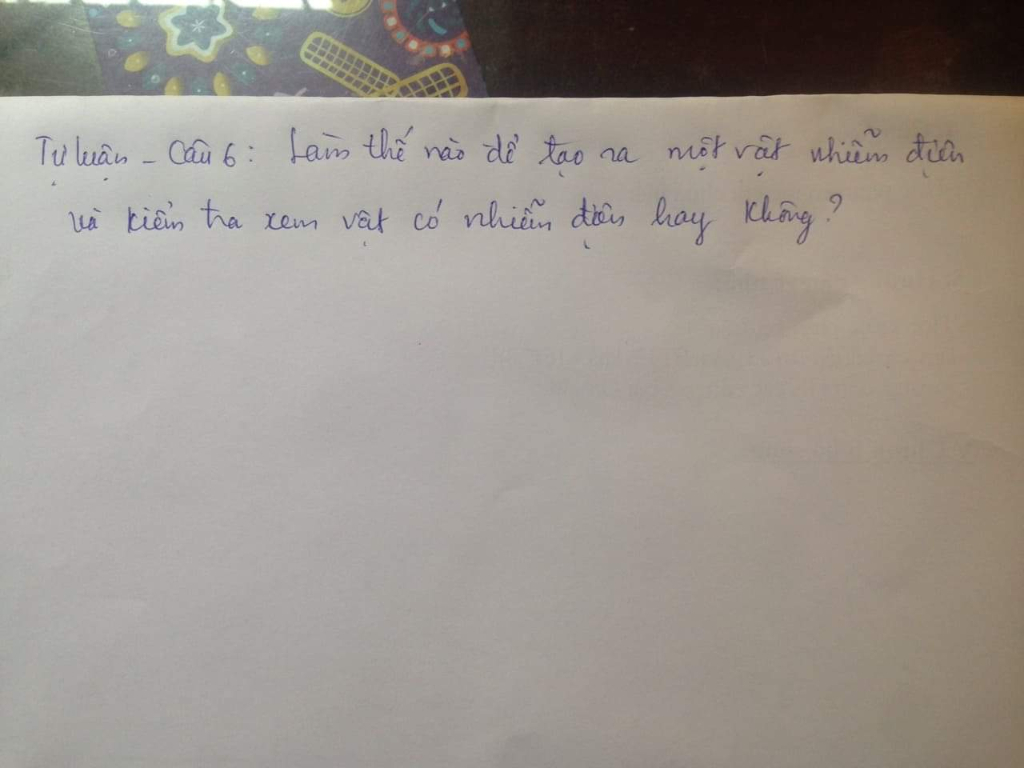 Tự luận - Câu 6: Làm thế nào để tạo ra một vật nhiễm điện
và kiểm tra xem vật có nhiễm điện hay không?